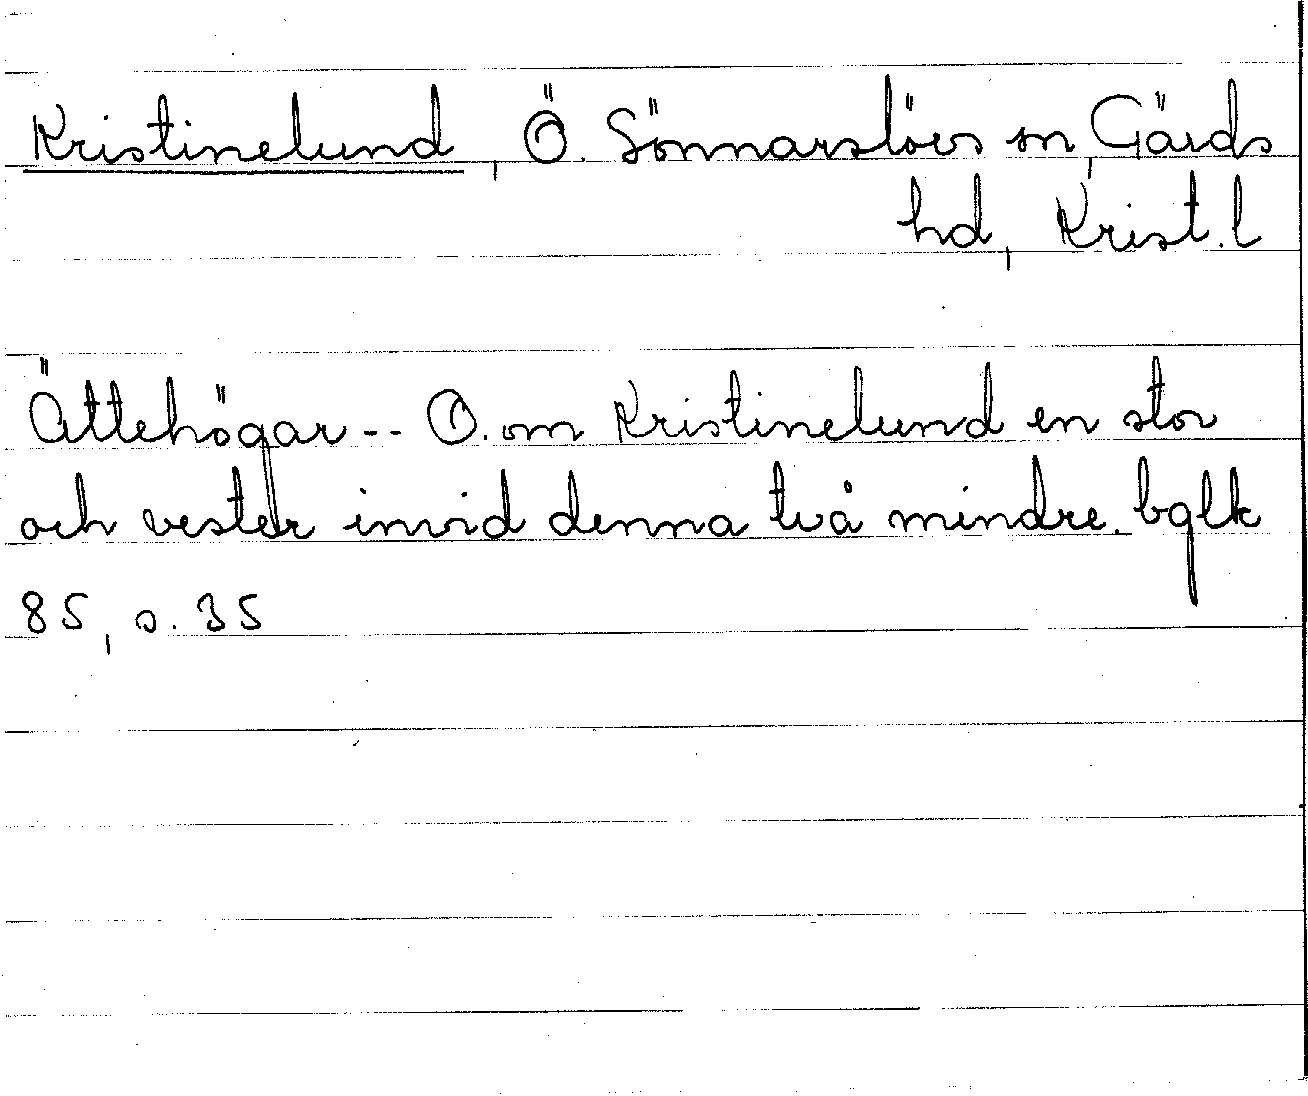 Kristinelund, Ö. Sönnarslövs sn, Gärds
hd, Krist. l
Ättehögar -- O. om Kristinelund en stor
och vester invid denna två mindre. bglk
85, s. 35